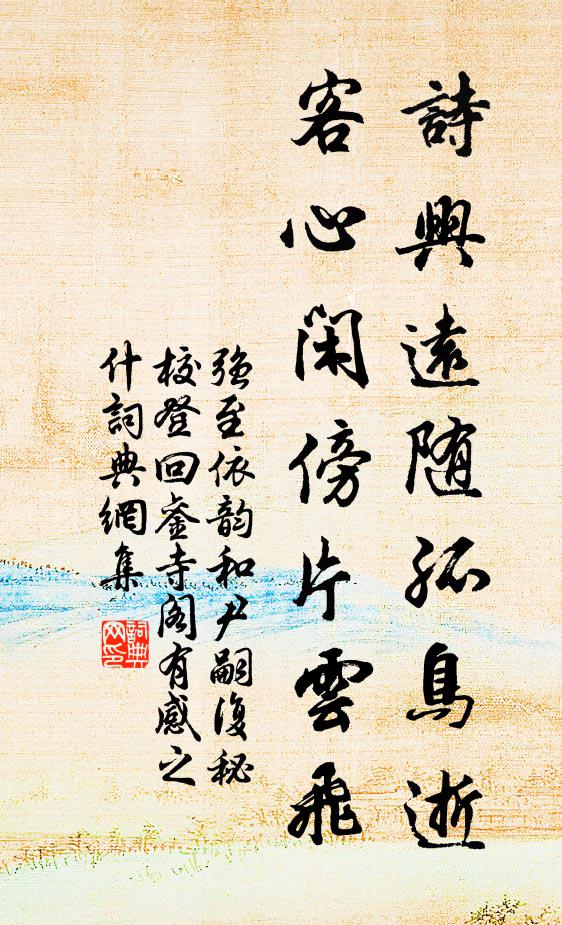 詩興遠随孤鳥逝
客心閑傍片雲飛
強至依韵和尹嗣復秘
校登回鑾寺閣有感之
什詞典網集
詞典网印